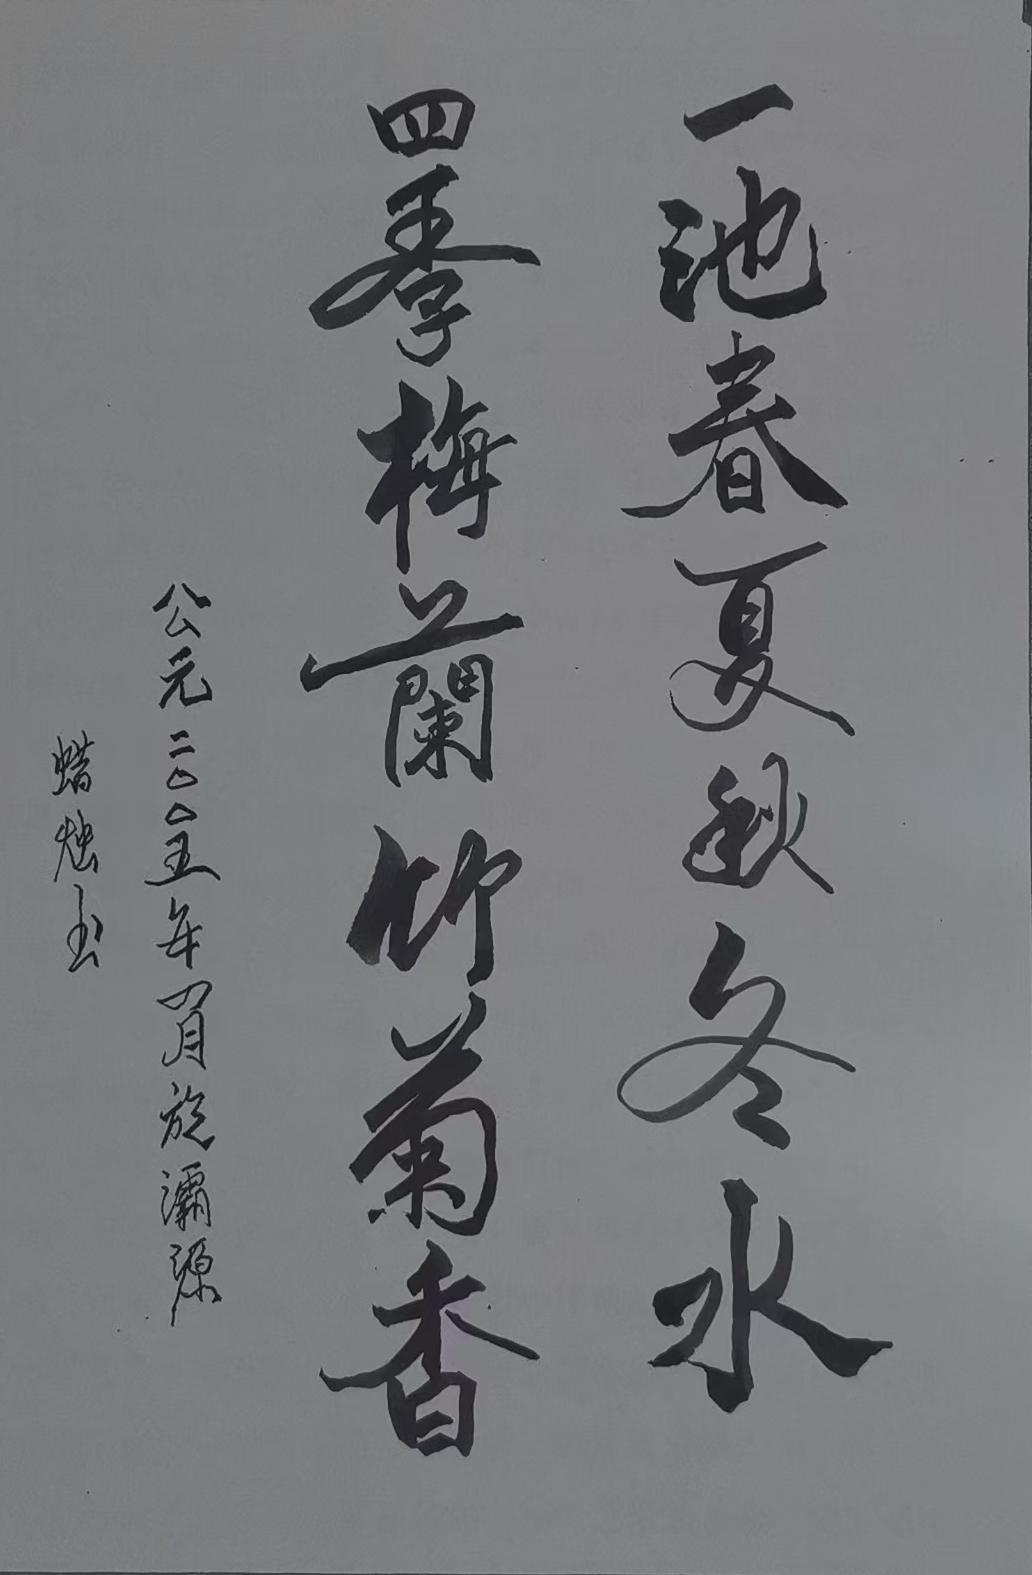 一池春夏秋冬水
四季梅蘭竹菊香
公元二〇〇五年四月於灞源
蜡烛玉